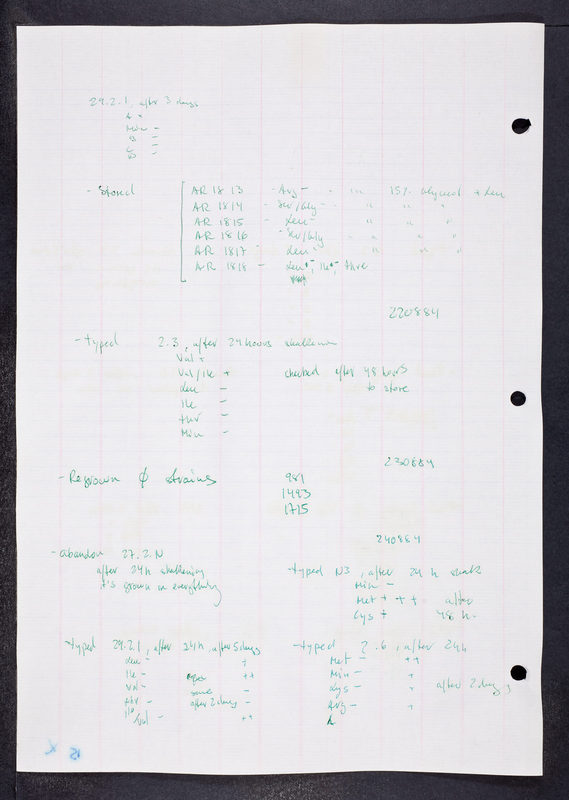 29.2.1, after 3 days
A +
Min -
B -
C -
D -
- Stored
AR 1813 - Arg - " in 15% glycerol + Leu
AR 1814 - Ser/Gly - " " " "
AR 1815 - Leu - " " "
AR 1816 - Ser/Gly " " " "
AR 1817 - Leu - " " "
AR 1818 - Leu+, Ile+, thre
220884
- typed 2.3, after 24 hours shaking
Val +
Val/Ile + checked after 48 hours
Leu - to store
Ile -
thr -
Min -
230884
- Regrown φ strains 981
1493
1715
240884
- abandon 27.2.N
after 24h shaking
it's grown in everything
- typed N3, after 24 h shake
Min -
Met + ++ after
Cys + 48 h.
- typed 29.2.1, after 24h, after 5 days
Leu - +
Ile - ++
Val - same -
thr - after 2 days -
Ile/Val - ++
- typed 2.6, after 24h
Met - ++
Min - +
Lys - + after 2 days
Arg - +
A
15